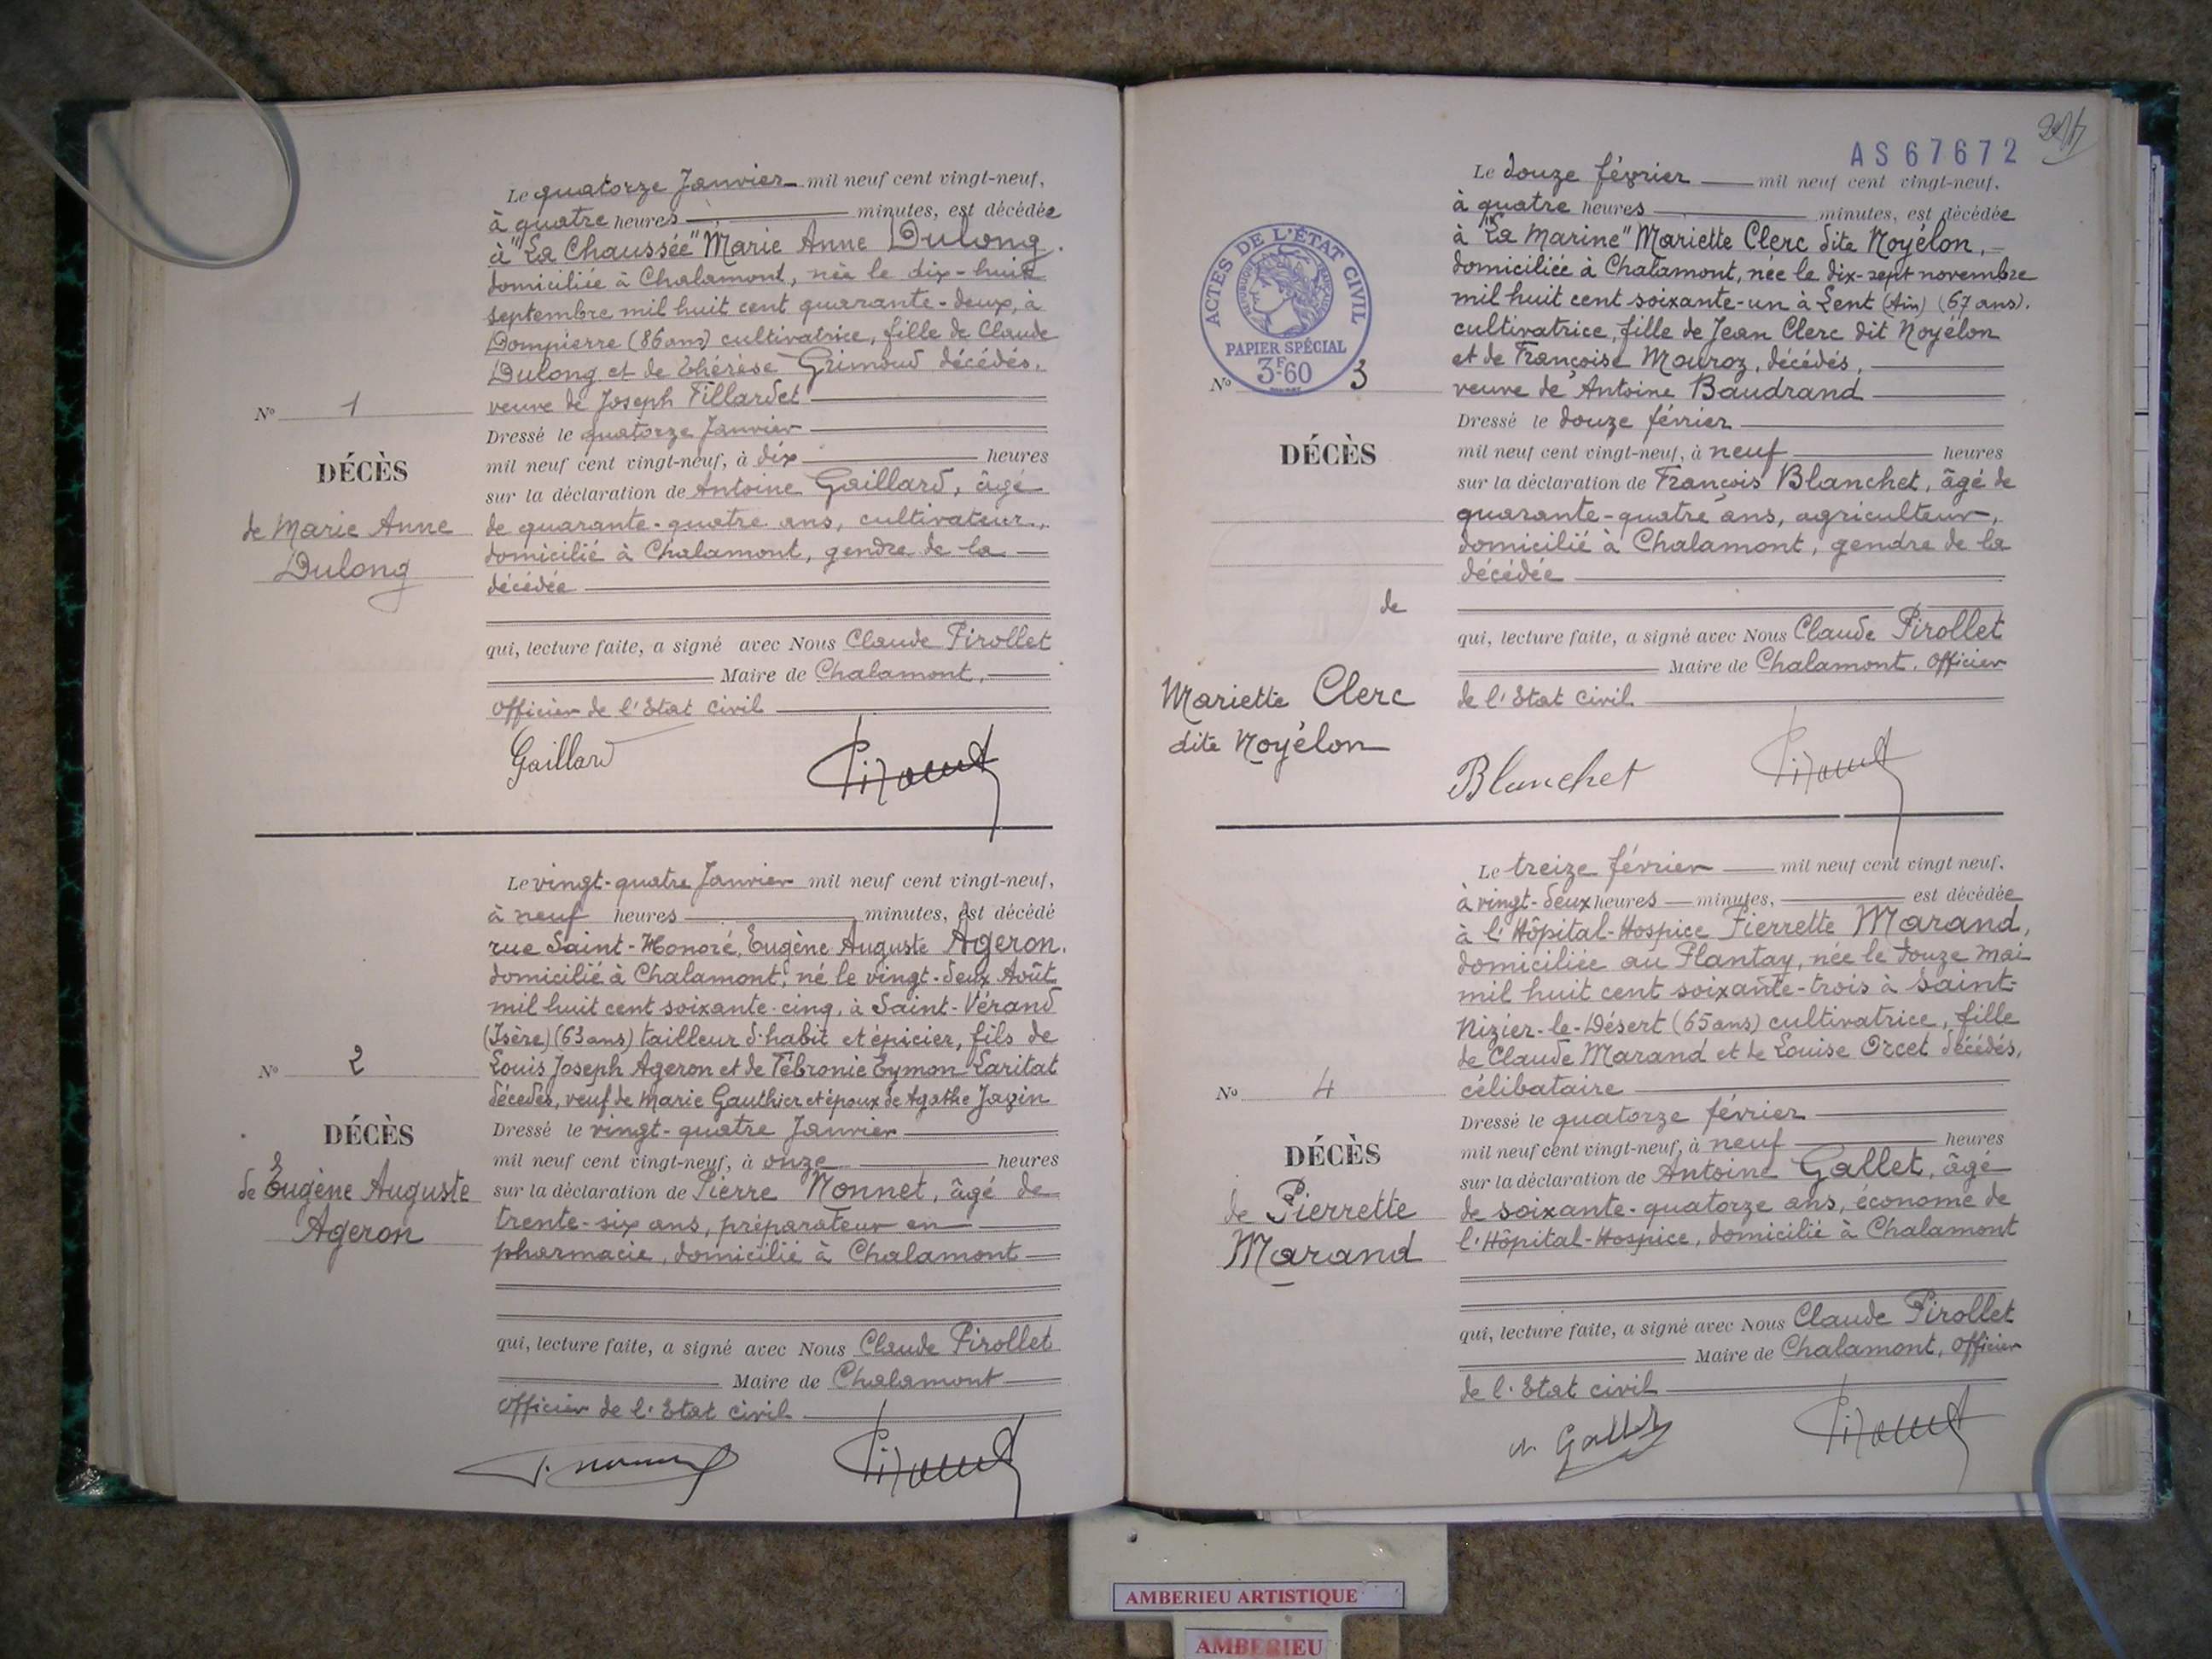 Le quatorze Janvier mil neuf cent vingt-neuf,
à quatre heures minutes, est décédée
à "La Chaussée" Marie Anne Dulong.
domiciliée à Chalamont, née le dix-huit
septembre mil huit cent quarante-deux, à
Dompierre (86 ans) cultivatrice, fille de Claude
Dulong et de Thérèse Grimoud décédés,
veuve de Joseph Fillardet
Nº 1
Dressé le quatorze Janvier
mil neuf cent vingt-neuf, à dix heures
DÉCÈS
sur la déclaration de Antoine Gaillard, âgé
de Marie Anne
Dulong
de quarante-quatre ans, cultivateur,
domicilié à Chalamont, gendre de la
décédée
qui, lecture faite, a signé avec Nous Claude Pirollet
Maire de Chalamont,
Officier de l'Etat Civil
Gaillard
Le vingt-quatre Janvier mil neuf cent vingt-neuf,
à neuf heures minutes, est décédé
rue Saint-Honoré, Eugène Auguste Ageron.
domicilié à Chalamont, né le vingt-deux Août
mil huit cent soixante-cinq, à Saint-Vérand
(Isère) (63 ans) tailleur d'habit et épicier, fils de
Louis Joseph Ageron et de Fébronie Eymon Laritat
décédés, veuf de Marie Gauthier et époux de Agathe Jazin
Nº 2
Dressé le vingt-quatre Janvier
mil neuf cent vingt-neuf, à onze heures
DÉCÈS
de Eugène Auguste
Ageron
sur la déclaration de Pierre Nonnet, âgé de
trente-six ans, préparateur en
pharmacie, domicilié à Chalamont
qui, lecture faite, a signé avec Nous Claude Pirollet
Maire de Chalamont
Officier de l'Etat civil
AS67672
Le douze février mil neuf cent vingt-neuf,
à quatre heures minutes, est décédée
à "La Marine" Mariette Clerc dite Noyélon,
domiciliée à Chalamont, née le dix-sept novembre
mil huit cent soixante-un à Lent (Ain) (67 ans).
cultivatrice, fille de Jean Clerc dit Noyélon
et de Françoise Mouroz, décédés,
veuve de Antoine Baudrand
ACTES DE L'ÉTAT CIVIL
RÉPUBLIQUE FRANÇAISE
PAPIER SPÉCIAL
3F60
Nº 3
Dressé le douze février
mil neuf cent vingt-neuf, à neuf heures
DÉCÈS
de
Mariette Clerc
dite Noyélon
sur la déclaration de François Blanchet, âgé de
quarante-quatre ans, agriculteur,
domicilié à Chalamont, gendre de la
décédée
qui, lecture faite, a signé avec Nous Claude Pirollet
Maire de Chalamont. Officier
de l'Etat Civil
Blanchet
Le treize février mil neuf cent vingt neuf,
à vingt-deux heures minutes, est décédée
à l'Hôpital-Hospice Pierrette Marand,
domiciliée au Plantay, née le douze mai
mil huit cent soixante-trois à Saint-
Nizier-le-Désert (65 ans) cultivatrice, fille
de Claude Marand et de Louise Orcet décédés,
célibataire
Nº 4
Dressé le quatorze février
mil neuf cent vingt-neuf, à neuf heures
DÉCÈS
de Pierrette
Marand
sur la déclaration de Antoine Gallet, âgé
de soixante-quatorze ans, économe de
l'Hôpital-Hospice, domicilié à Chalamont
qui, lecture faite, a signé avec Nous Claude Pirollet
Maire de Chalamont, Officier
de l'Etat civil
AMBERIEU ARTISTIQUE
AMBERIEU